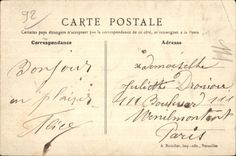 92
CARTE POSTALE
Certains pays étrangers n'acceptent pas la correspondance de ce côté, se renseigner à la Poste
Correspondance
Adresse
Bonjour
en plaisir
Alice
Mademoiselle
Juliette
111 Boulevard 111
Menilmontant
Paris
A. Bourdier, imp.-édit., Versailles